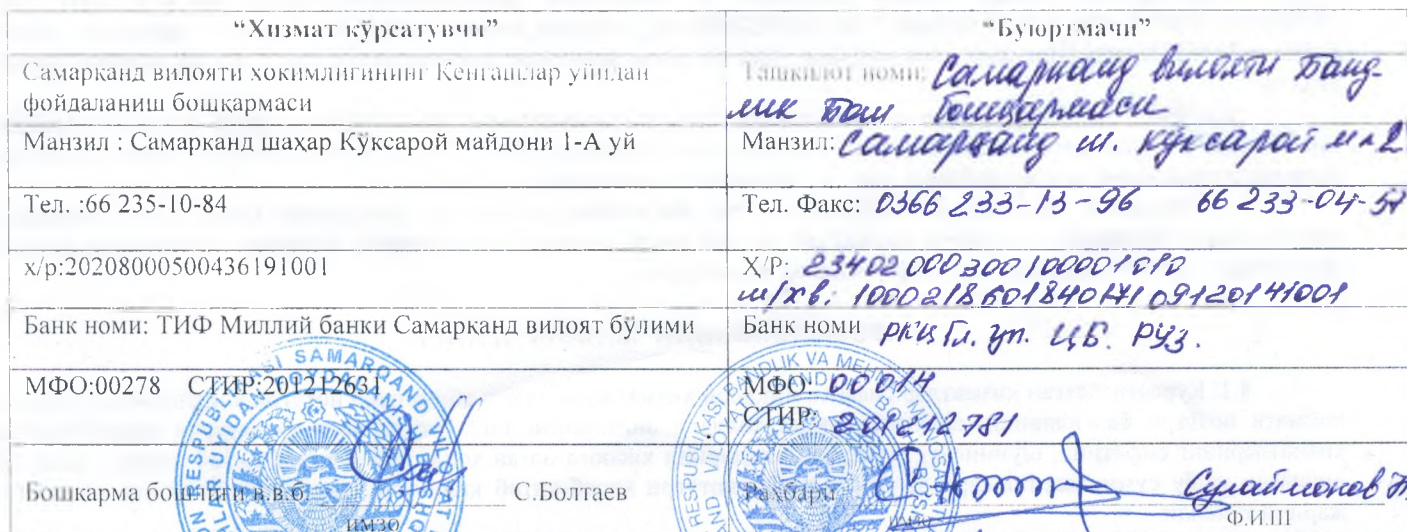 “Хизмат кўрсатувчи”
“Буюртмачи”
Самарканд вилояти хокимлигининг Кенгашлар уйидан
фойдаланиш бошқармаси
Ташкилот номи: Самарканд вилояти Банд-
лик Бош бошқармаси
Манзил : Самарканд шаҳар Кўксарой майдони 1-А уй
Манзил: Самарқанд ш. Кўксарой м 2
Тел. :66 235-10-84
Тел. Факс: 0366 233-13-96 66 233-04-57
х/р:20208000500436191001
Х/Р: 23402000300100001010
ш/хв: 100021860184017109120141001
Банк номи: ТИФ Миллий банки Самарқанд вилоят бўлими
Банк номи РКЦ Гл. уп. ЦБ. РУз.
МФО:00278 СТИР:201212631
МФО: 00014
СТИР: 201212781
Бошкарма бошлиғи в.в.б. С.Болтаев
имзо
Раҳбари Сулаймонов
имзо Ф.И.Ш